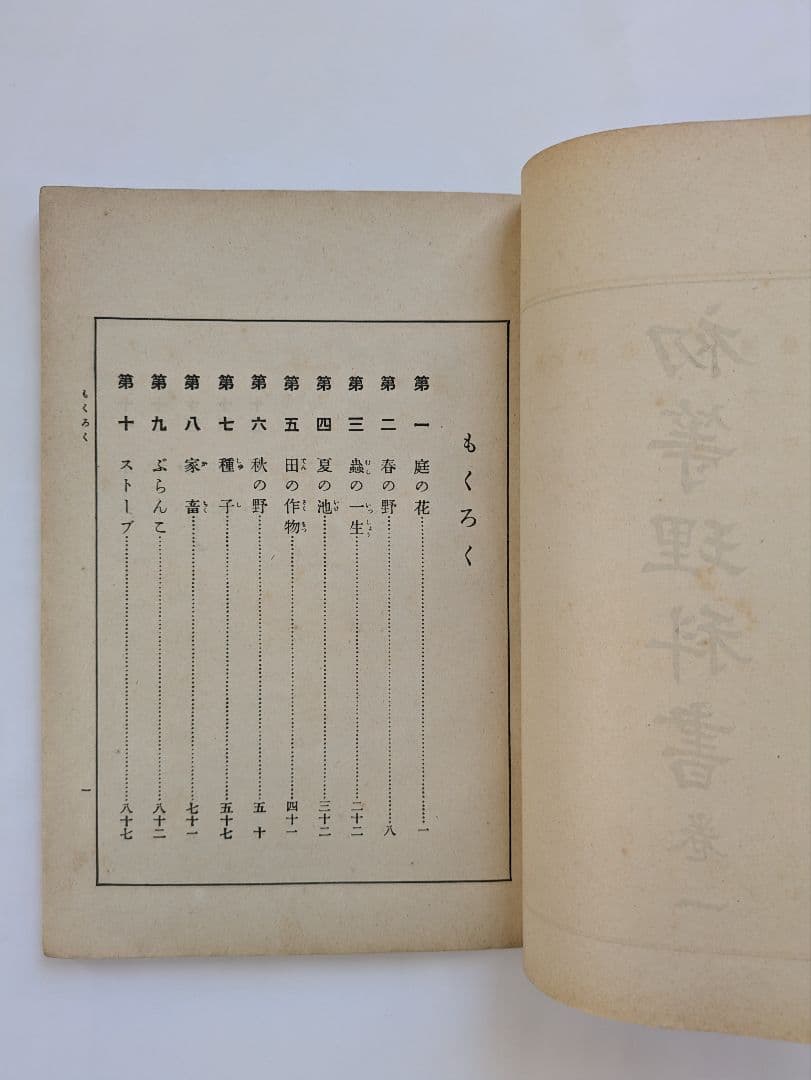 初等理科書 巻一
もくろく
第一 庭の花……一
第二 春の野……八
第三 蟲の一生……二十二
第四 夏の池……三十二
第五 田の作物……四十一
第六 秋の野……五十
第七 種子……五十七
第八 家畜……七十一
第九 ぶらんこ……八十二
第十 ストーブ……八十七
もくろく
一